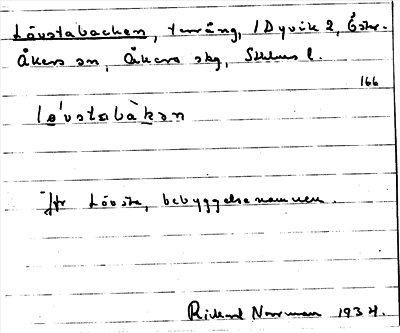 Lövstabacken, terräng, 1 Dyvik 2, Öster-
Åkers sn, Åkers skg, Sthlms l.
166
lǿvstabàkən
Jfr Lövsta, bebyggelsenamnen.
Rickard Norrman 1934.